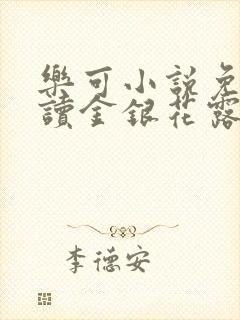 樂可小說免
讀金銀花露
李德安